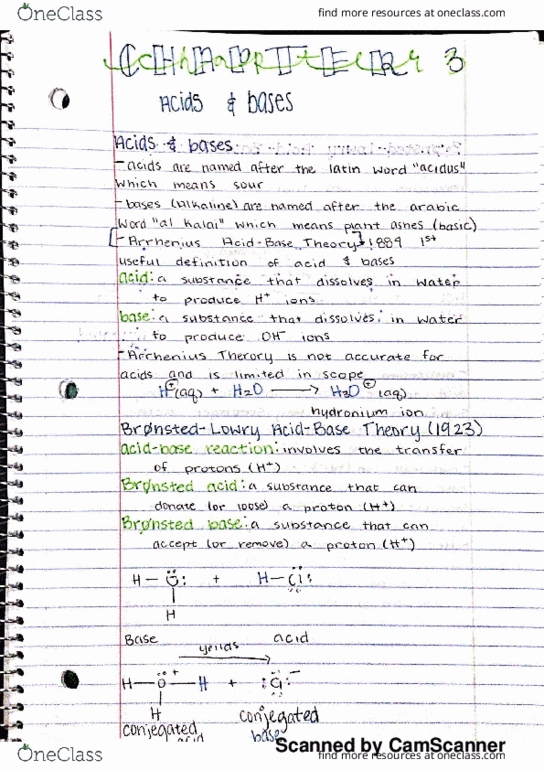 OneClass
find more resources at oneclass.com
CHAPTER 3
Acids & bases
Acids & bases:
- acids are named after the latin word "acidus"
which means sour
- bases (alkaline) are named after the arabic
word "al kalai" which means plant ashes (basic)
[- Arrhenius Acid-Base Theory] 1884 1st
useful definition of acid & bases
acid: a substance that dissolves in water
to produce H+ ions
base: a substance that dissolves in water
to produce OH- ions
- Arrhenius Therory is not accurate for
acids and is limited in scope
H+(aq) + H2O ⟶ H3O+(aq)
hydronium ion
Brønsted-Lowry Acid-Base Theory (1923)
acid-base reaction: involves the transfer
of protons (H+)
Brønsted acid: a substance that can
donate (or loose) a proton (H+)
Brønsted base: a substance that can
accept (or remove) a proton (H+)
H—O: + H—Cl:
H
Base acid
yeilds
H—O+—H + :Cl:-
H
conjegated conjegated
acid base
Scanned by CamScanner
OneClass
find more resources at oneclass.com